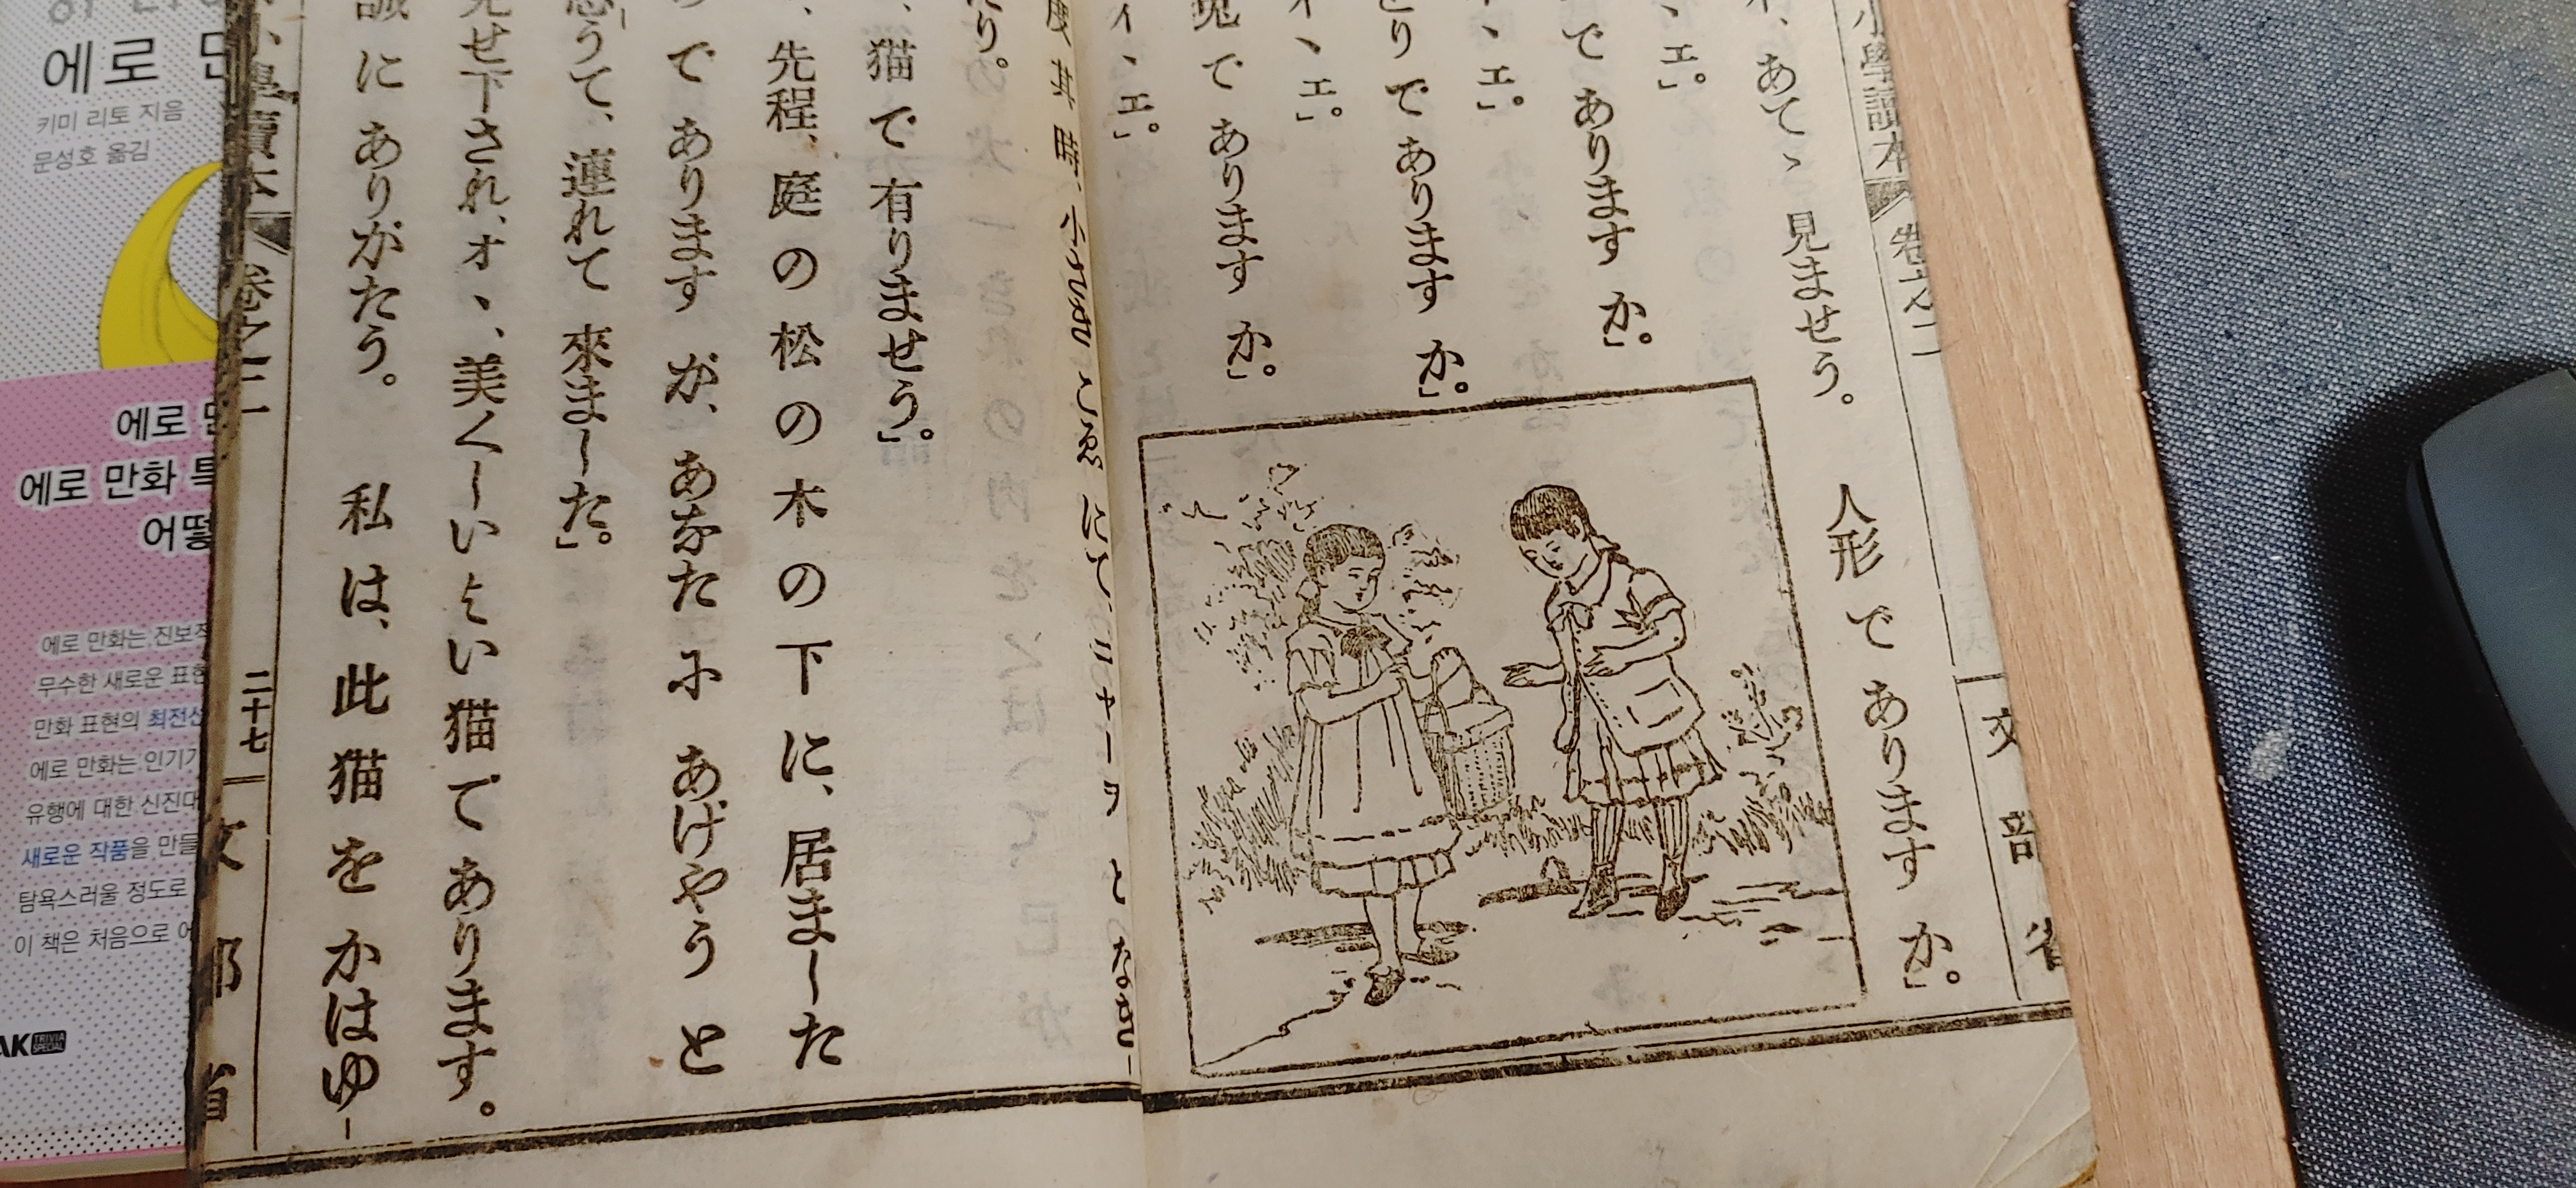 小學讀本 卷之二 文部省
あてゝ見ませう。 人形 で あります か。」
エ。」
で あります か。」
ヽエ。」
とり で あります か。」
イヽエ。」
兎 で あります か。」
イヽエ。」
度 其 雌 小さな こゑ にて、ニャーヲ と なきし
たり。
猫 で 有りませう。」
先程、庭 の 松 の 木 の 下 に、居ました
で あります が、あなた に あげやう と
思うて、連れて 來ました。」
見せ下され、オヽ、美くしい よい 猫 で あります。
誠 に ありがたう。 私 は、此 猫 を かはゆ
小學讀本 卷之二 二十七 文部省
에로
키미 리토 지음
문성호 옮김
에로
에로 만화
어떻
에로 만화는 진보적
무수한 새로운 표현
만화 표현의 최전선
에로 만화는 인기가
유행에 대한 신진대
새로운 작품을 만들
탐욕스러울 정도로
이 책은 처음으로
AK TRIVIA SPECIAL